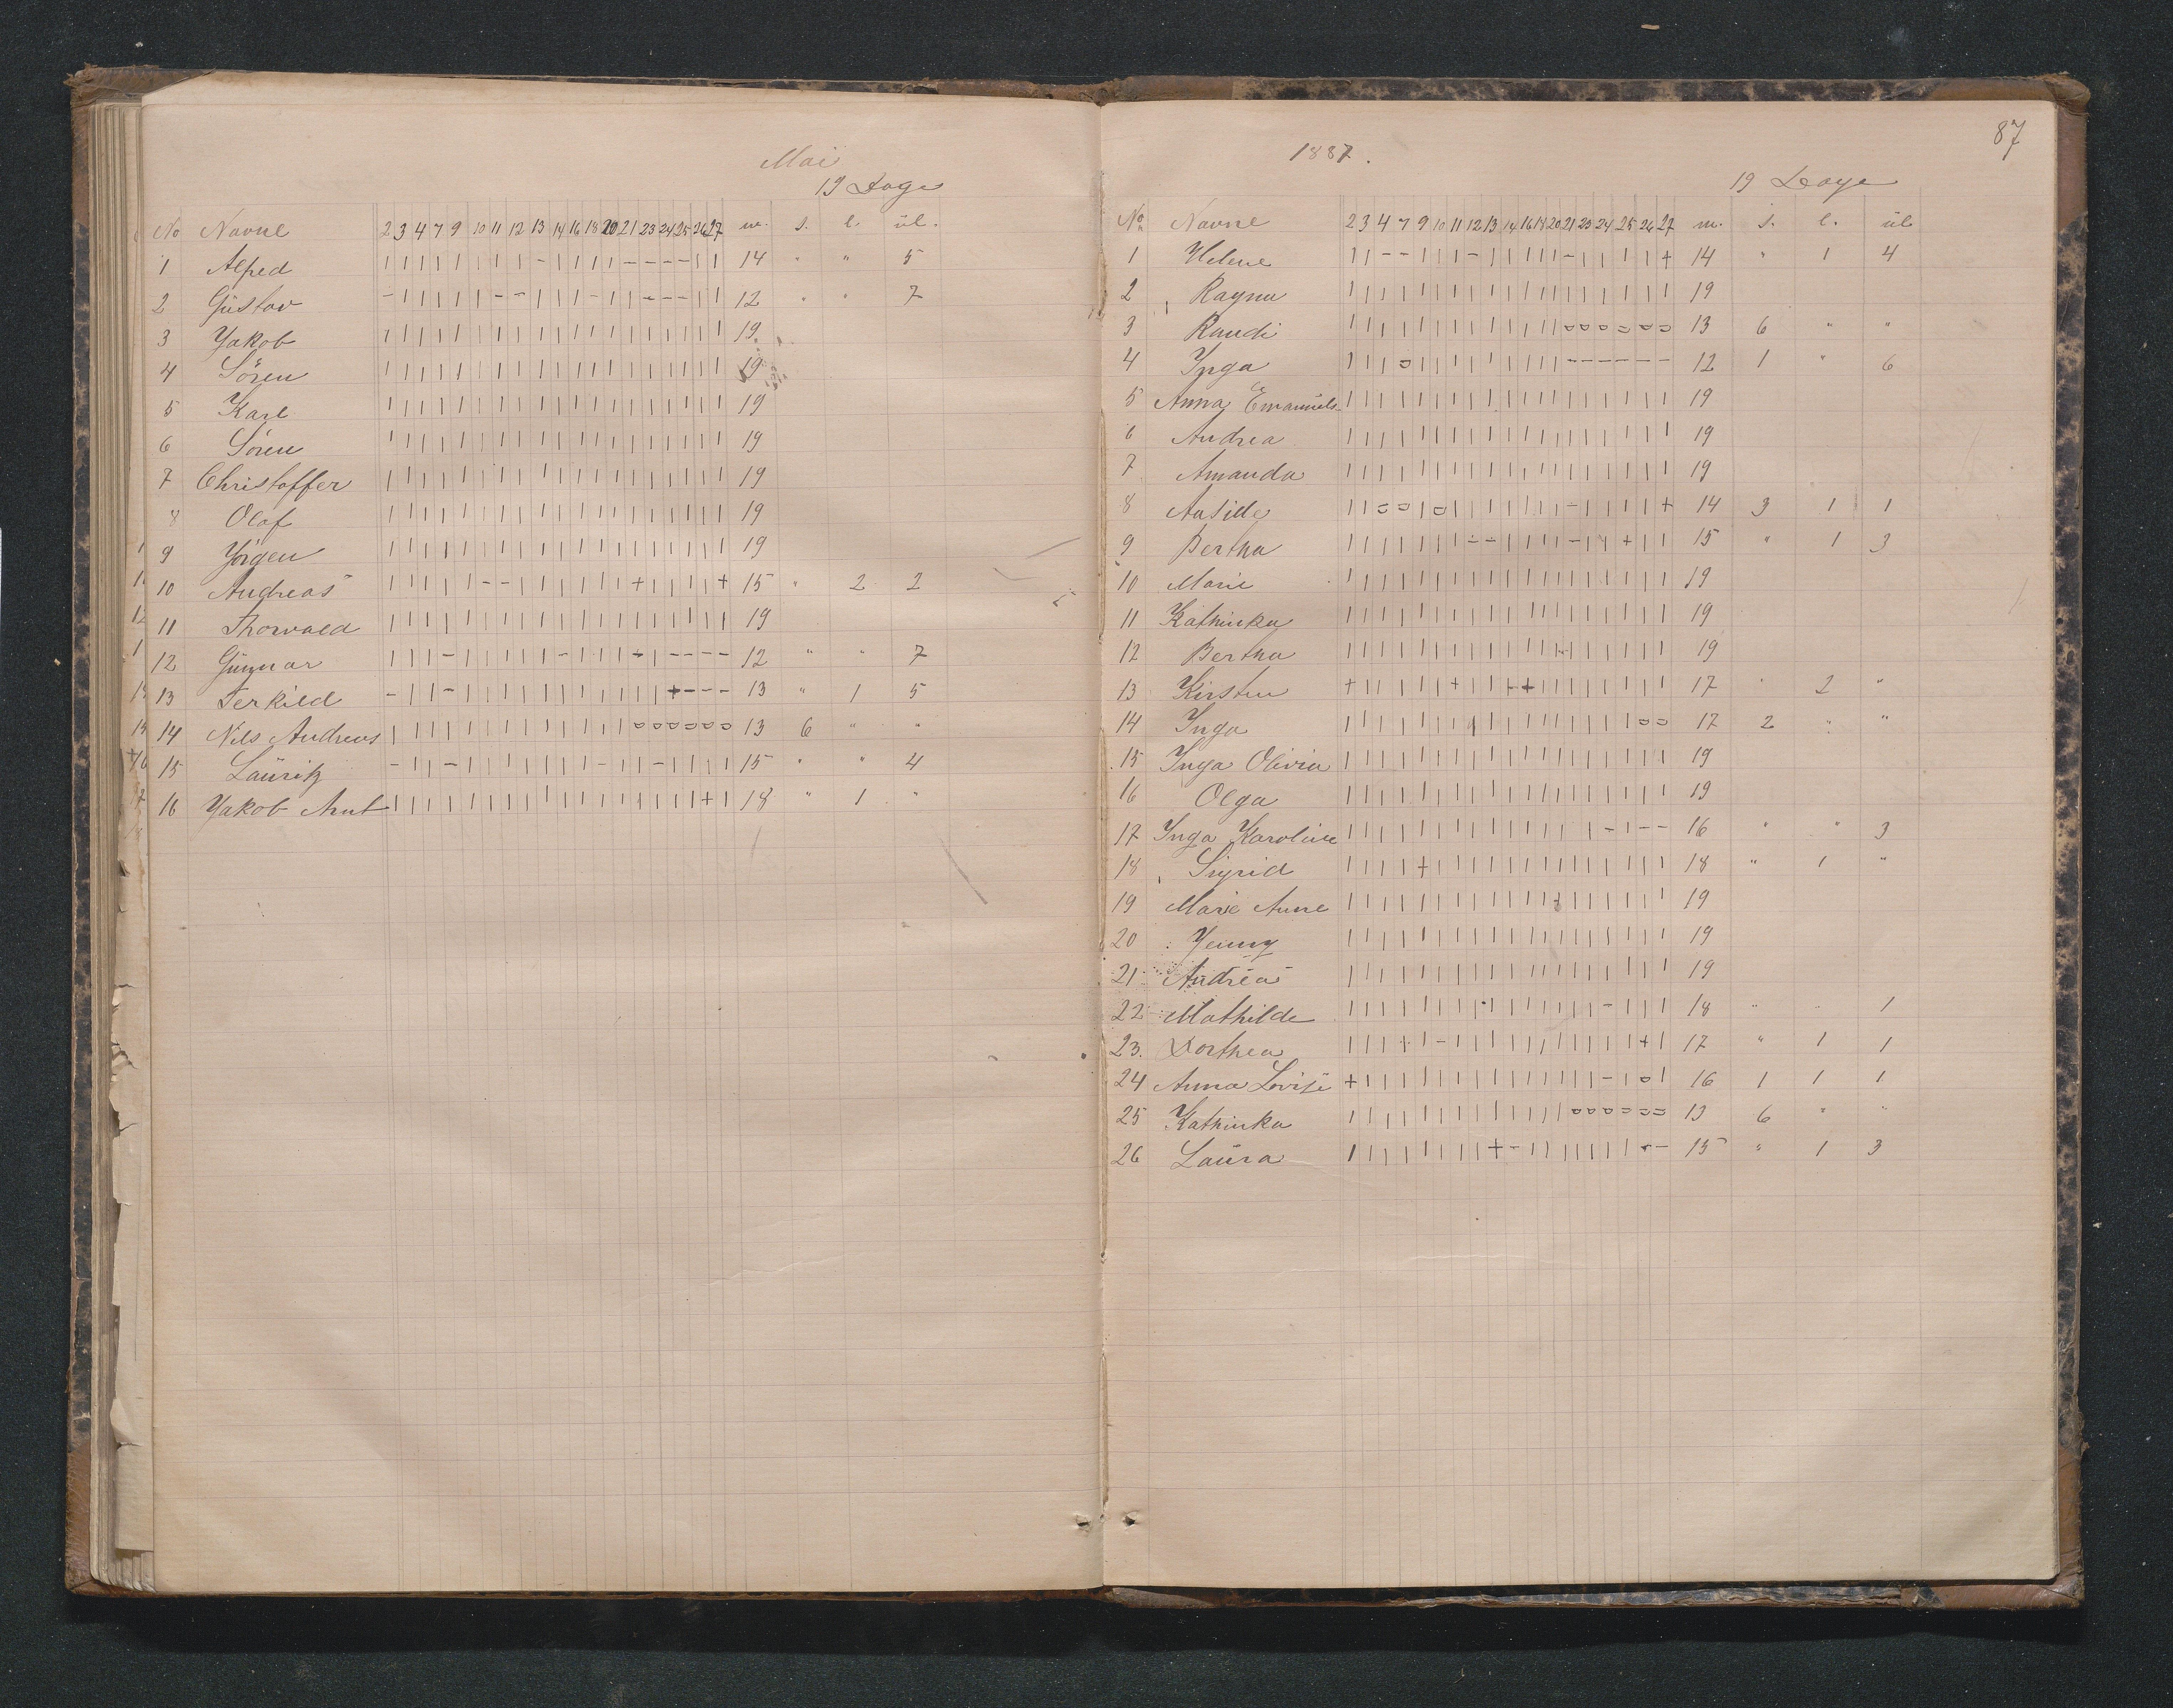 Mai
19 Dage
No Navne 2 3 4 7 9 10 11 12 13 14 16 18 20 21 23 24 25 26 27 m. s. l. ul.
1 Alfred | | | | | | | | - | | | | - - - - | | 14 " " 5
2 Gustav - | | | | | - - | | | - | | - - - | | 12 " " 7
3 Yakob | | | | | | | | | | | | | | | | | | | 19
4 Sören | | | | | | | | | | | | | | | | | | | 19
5 Karl | | | | | | | | | | | | | | | | | | | 19
6 Sören | | | | | | | | | | | | | | | | | | | 19
7 Christoffer | | | | | | | | | | | | | | | | | | | 19
8 Olaf | | | | | | | | | | | | | | | | | | | 19
9 Yörgen | | | | | | | | | | | | | | | | | | | 19
10 Andreas | | | | | - - | | | | | | + | | | | + 15 " 2 2
11 Thorvald | | | | | | | | | | | | | | | | | | | 19
12 Gunnar | | | - | | | | | - | | | - | - - - - 12 " " 7
13 Terkild - | | - | | | | | | | | | | | + - - - 13 " 1 5
14 Nils Andreas | | | | | | | | | | | | | o o o o o o 13 6 " "
15 Lauritz - | | - | | | | | | | - | | - | | | | 15 " " 4
16 Yakob Arnt | | | | | | | | | | | | | | | | | + | 18 " 1 "
87
1887.
19 Dage
No Navne 2 3 4 7 9 10 11 12 13 14 16 18 20 21 23 24 25 26 27 m. s. l. ul
1 Helene | | - - | | | - | | | | | - | | | | + 14 " 1 4
2 Ragna | | | | | | | | | | | | | | | | | | | 19
3 Randi | | | | | | | | | | | | | o o o o o o 13 6 " "
4 Inga | | | o | | | | | | | | | - - - - - - 12 1 " 6
5 Anna Emanuels. | | | | | | | | | | | | | | | | | | | 19
6 Andrea | | | | | | | | | | | | | | | | | | | 19
7 Amanda | | | | | | | | | | | | | | | | | | | 19
8 Aasille | | o o | o | | | | | | | - | | | | + 14 3 1 1
9 Bertha | | | | | | | - - | | | | - | | + | | 15 " 1 3
10 Marie | | | | | | | | | | | | | | | | | | | 19
11 Kathinka | | | | | | | | | | | | | | | | | | | 19
12 Bertha | | | | | | | | | | | | | | | | | | | 19
13 Kirsten + | | | | | + | | + + | | | | | | | | 17 " 2 "
14 Inga | | | | | | | | | | | | | | | | | o o 17 2 " "
15 Inga Olivia | | | | | | | | | | | | | | | | | | | 19
16 Olga | | | | | | | | | | | | | | | | | | | 19
17 Inga Karoline | | | | | | | | | | | | | | | - | - - 16 " " 3
18 Sigrid | | | | + | | | | | | | | | | | | | | 18 " 1 "
19 Marie Anne | | | | | | | | | | | | | | | | | | | 19
20 Yenny | | | | | | | | | | | | | | | | | | | 19
21 Andrea | | | | | | | | | | | | | | | | | | | 19
22 Mathilde | | | | | | | | | | | | | | | - | | | 18 " " 1
23. Dorthea | | | + | - | | | | | | | | | | | + | 17 " 1 1
24 Anna Lovise + | | | | | | | | | | | | | | - | o | 16 1 1 1
25 Kathinka | | | | | | | | | | | | | o o o o o o 13 6 " "
26 Laura | | | | | | | | + - | | | | | | | - - 15 " 1 3